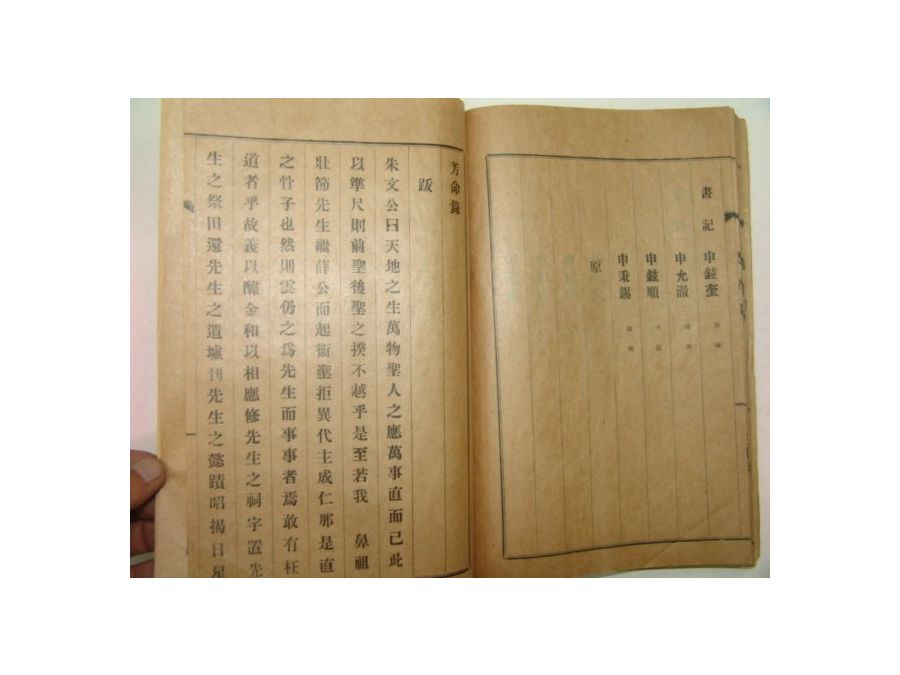 書記 申鉉奎
申允澈
申鉉順
申秉錫
原
芳命錄
跋
朱文公曰天地之生萬物聖人之應萬事直而已此
以準尺則前聖後聖之揆不越乎是至若我 鼻祖
壯節先生繼薛公而起衛聖拒異代主成仁那是直
之骨子也然則雲仍之爲先生而事事者焉敢有枉
道者乎故義以醵金和以相應修先生之祠宇置先
生之祭田還先生之遺墟刊先生之懿蹟昭揭日星
一